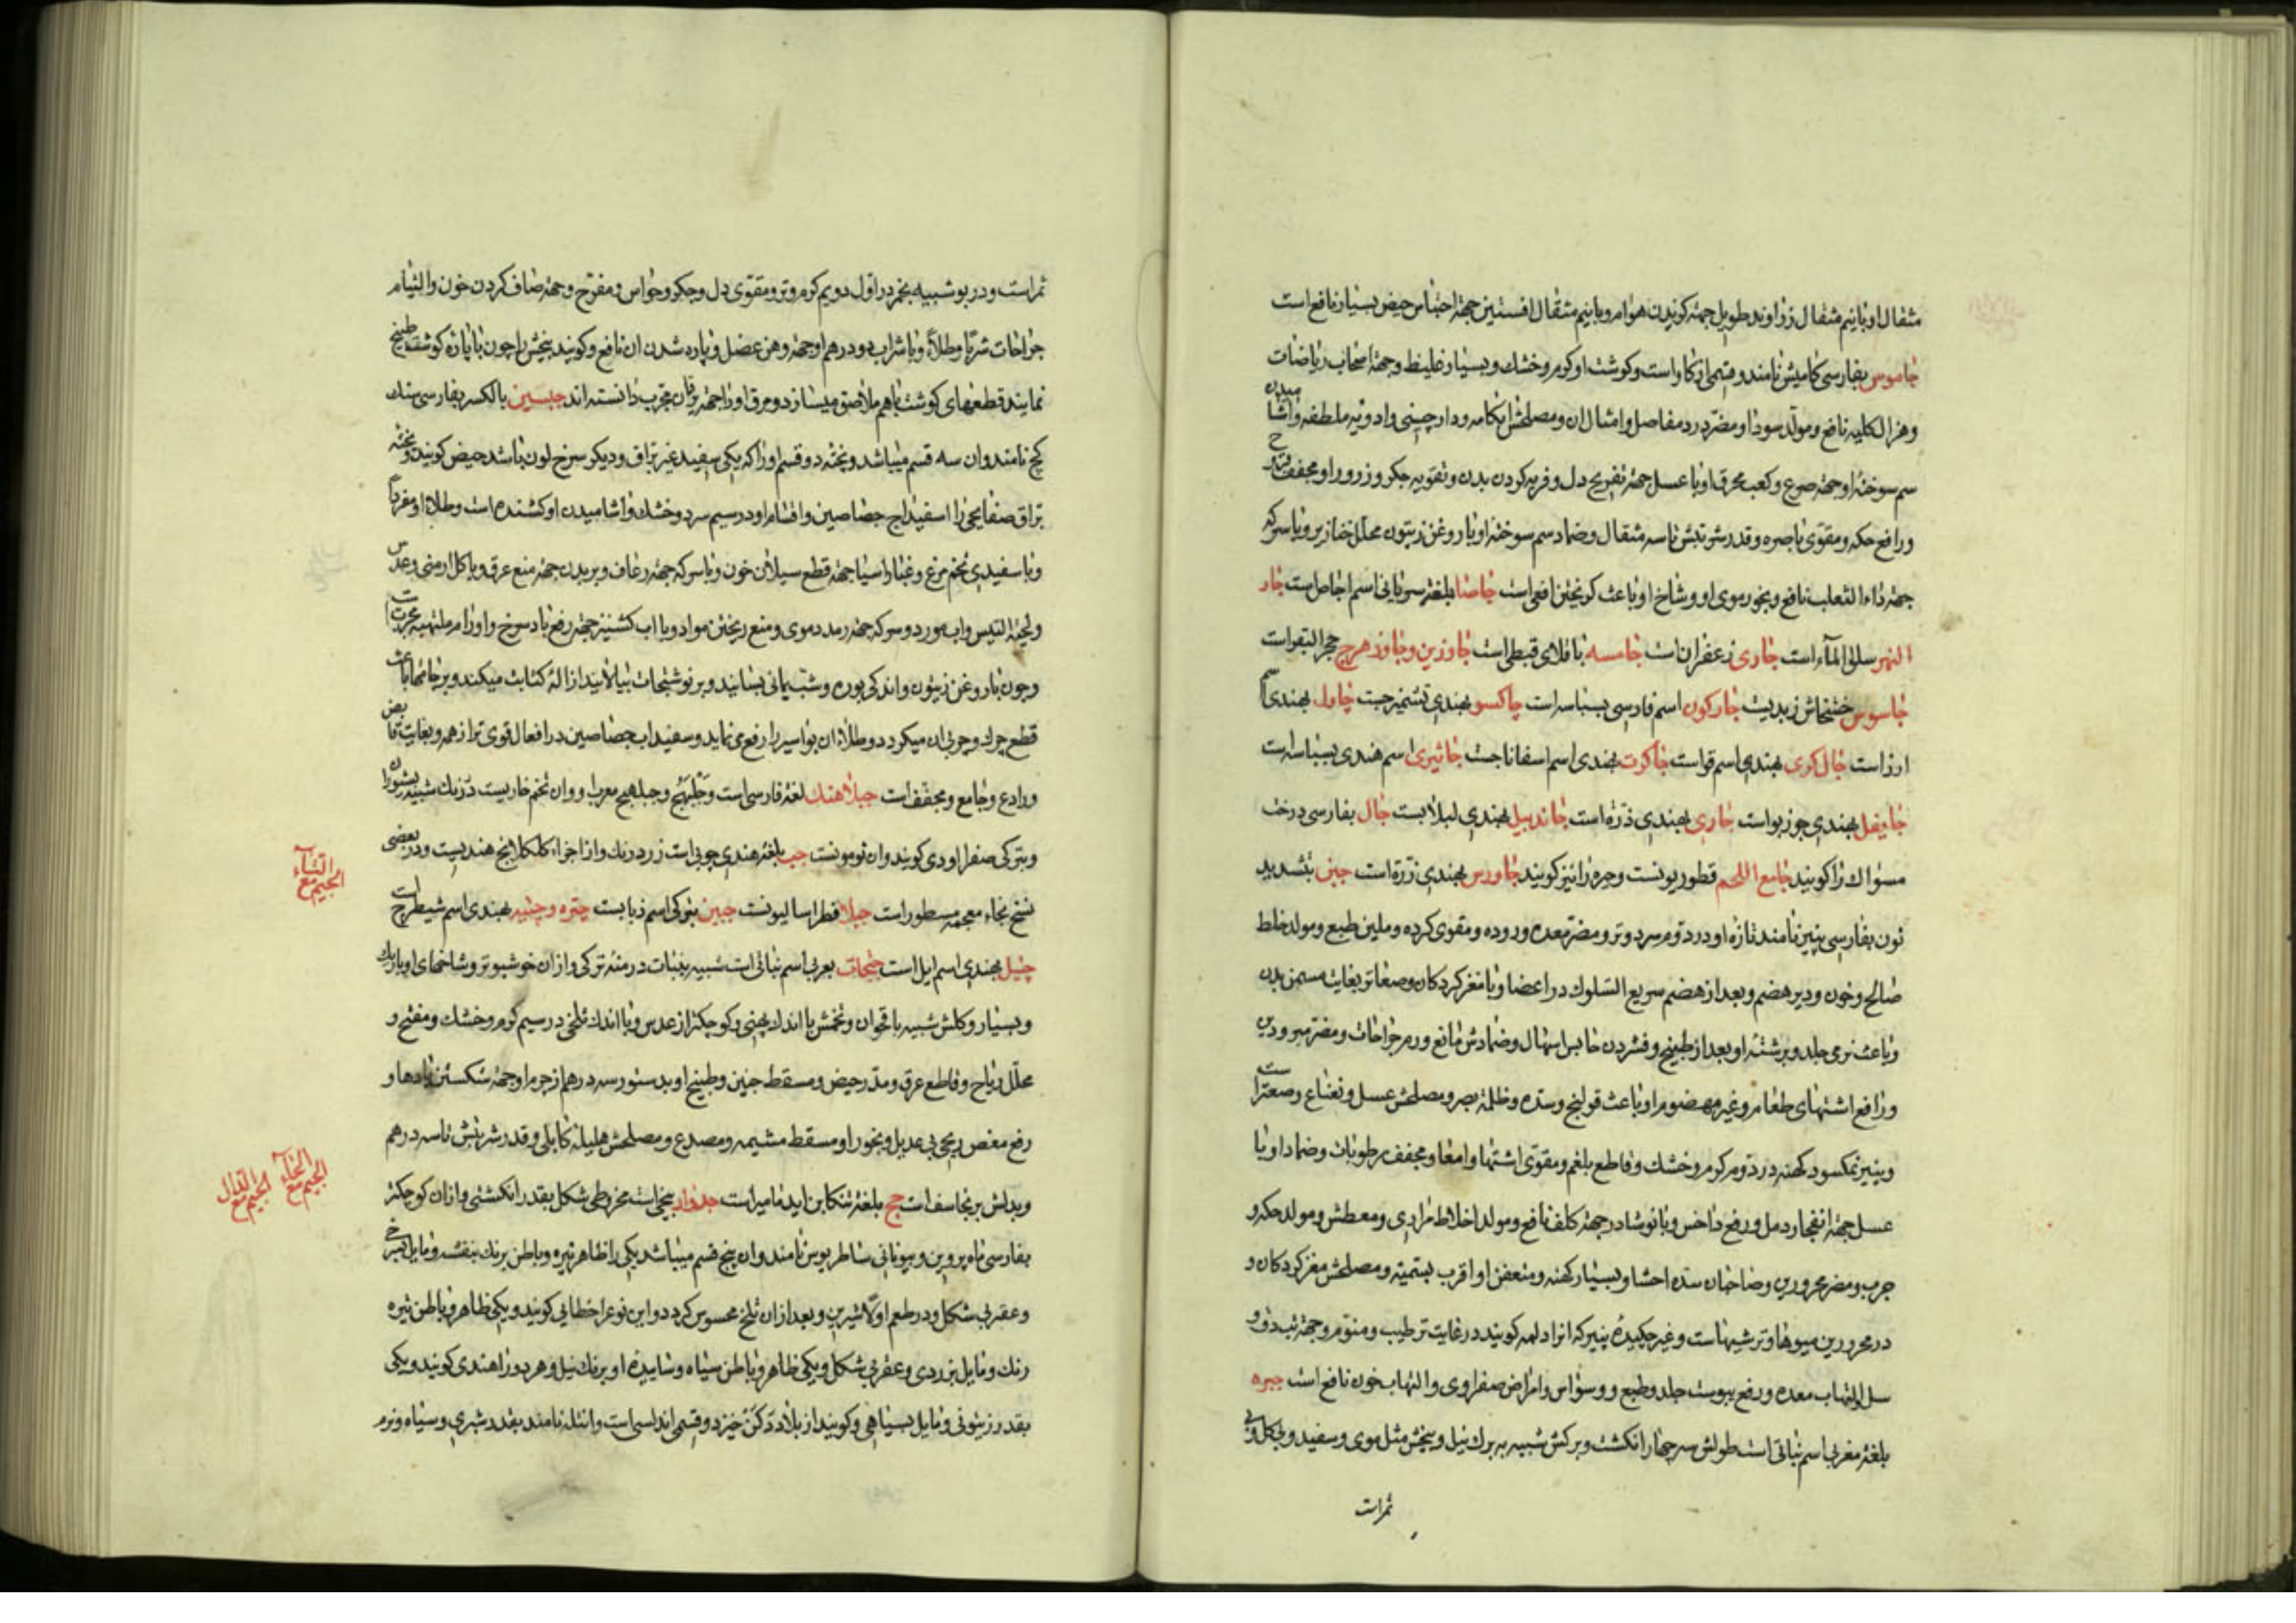 مثقال او با نیم مثقال زراوند طویل جهة کزیدن هوام و با نیم مثقال افسنتین جهة احتباس حیض بسیار نافع است
جاموس بفارسی کامیش نامند و قسمی از کاو است و کوشت او کرم و خشک و بسیار غلیظ و جهة اصحاب ریاضات
و هزال کلیه نافع و مولد سودا و مضر درد مفاصل و امثال ان و مصلحش ابکامه و دارچینی و ادویه ملطفه و اشامیدن
سم سوختهٔ او جهة صرع و کعب محرق او با عسل جهة تفریح دل و فربه کردن بدن و تقویه جکر و زرور او مجفف قروح
و رافع حکه و مقوی باصره و قدر شربتش تا سه مثقال و ضماد سم سوختهٔ او با روغن زیتون محلل خنازیر و با سرکه
جهة داء الثعلب نافع و بخور موی او و شاخ او باعث کریختن افعی است جاصا بلغة سریانی اسم اجاص است جار
النهر سلق الماء است جادی زعفران است جامسه باقلای قبطی است جاوزین و جاوزهرج حجر البقر است
جاسوس خشخاش زبدیست جارکون اسم فارسی بسباسه است چاکسو بهندی تشمیزجست چاول بهندی اسم
ارز است جال کری بهندی اسم قو است جاکوت بهندی اسم اسفاناجست جاثیری اسم هندی بسباسه است
جایفل بهندی جوزبوا است جاری بهندی ذرة است جاندبیل بهندی لبلابست جال بفارسی درخت
مسواک را کویند جامع اللحم قطوریونست و جره را نیز کویند جاورس بهندی ذرة است جبن بتشدید
نون بفارسی پنیر نامند تازهٔ او در دوم سرد و تر و مضر معده و روده و مقوی کرده و ملین طبع و مولد خلط
صالح و خون و دیر هضم و بعد از هضم سریع السلوک در اعضا و با مغز کردکان و صعاتر بغایت مسمن بدن
و باعث نرمی جلد و برشتهٔ او بعد از طبیخ و فشردن حابس اسهال و ضمادش مانع ورم جراحات و مضر مبرودین
و رافع اشتهای طعام و غیر مهضوم او باعث قولنج و سده و ظلمة بصر و مصلحش عسل و نعناع و صعتر است
و پنیر نمکسود کهنه در دوم کرم و خشک و قاطع بلغم و مقوی اشتها و امعا و مجفف رطوبات و ضماد او با
عسل جهة انفجار دمل و رفع داخس و با نوشادر جهة کلف نافع و مولد اخلاط مراری و معطش و مولد حکه و
جرب و مضر محرورین و صاحبان سده احشا و بسیار کهنه و متعفن او اقرب بسمیته و مصلحش مغز کردکان و
در محرورین میوها و ترشیهاست و غیر چکیدهٔ پنیر که انرا دلمه کویند در غایت ترطیب و منوم و جهة تب دق و
سل و التهاب معده و رفع یبوست جلد و طبع و وسواس و امراض صفراوی و التهاب خون نافع است جبره
بلغة مغربی اسم نباتی است طولش سه چهار انکشت و برکش شبیه به برک نیل و بیخش مثل موی و سفید و بیکل و بی
ثمر است
ثمر است و در بو شبیه بخمر در اول دویم کرم و تر و مقوی دل و جکر و حواس و مفرح و جهة صاف کردن خون و التیام
جراحات شربا و طلاء و با شراب دو درهم او جهة وهن عضل و پاره شدن ان نافع و کویند بیخش را چون با پارهٔ کوشت طبخ
نمایند قطعهای کوشت با هم ملاصق میسازد و مرق او را جهة یرقان مجرب دانسته اند جبسین بالکسر بفارسی سنک
کچ نامند و ان سه قسم میباشد و پختهٔ دو قسم او را که یکی سفید غیر براق و دیکر سرخ لون باشد جبص کویند و پختهٔ
براق صفایحی را اسفیداج جصاصین و اقسام او در سیم سرد و خشک و اشامیدن او کشنده است و طلاء او مفردا
و با سفیدی تخم مرغ و غبار اسیا جهة قطع سیلان خون و با سرکه جهة رعاف و بر بدن جهة منع عرق و با کل ارمنی و عدس
و لحیة التیس و اب مورد و سرکه جهة رمد دموی و منع ریختن مواد و با اب کشنیز جهة رفع باد سرخ و اورام ملتهبه مجرب است
و چون با روغن زیتون و اندکی بوره و شب یمانی بسایند و بر نوشتجات بیالایند ازالهٔ کتابت میکند و بر جامها باعث
قطع چرک و چربی ان میکردد و طلاء ان بواسیر را رفع می نماید و سفیداب جصاصین در افعال قوی تر از همه و بغایت قابض
و رادع و جامع و مجفف است جبلاهنک لغة فارسی است و جبلهنج و جبلاهنج معرب او و ان تخم خاریست در رنک شبیه بتودران
و بترکی صفرا اودی کویند و ان تومونست جب بلغة هندی چوبی است زرد رنک و از اجزاء کلکلانج هندیست و در بعضی
نسخ بخاء معجمه مسطور است جبلا فطراسالیونست جبین بترکی اسم ذبابست چتره و چتیه بهندی اسم شیطرج است
چتیل بهندی اسم ایل است جثجاث بعربی اسم نباتی است شبیه بنبات درمنهٔ ترکی و از ان خوشبوتر و شاخهای او باریک
و بسیار و کلش شبیه باقحوان و تخمش با اندک پهنی و کوچکتر از عدس و با اندک تلخی در سیم کرم و خشک و مفتح و
محلل ریاح و قاطع عرق و مدر حیض و مسقط جنین و طبیخ او بدستور سه درهم از جرم او جهة شکستن بادها و
رفع مغص ریحی بی عدیل و بخور او مسقط مشیمه و مصدع و مصلحش هلیلهٔ کابلی و قدر شربتش تا سه درهم
و بدلش برنجاسف است جخ بلغة تنکابن اید مامیر است جدوار بیخی است مخروطی شکل بقدر انکشتی و از ان کوچکتر
بفارسی ماه پروین و بیونانی ساطریوس نامند و ان پنج قسم میباشد یکی را ظاهر تیره و باطن برنک بنفشه و مایل بسرخی
و عقربی شکل و در طعم اولا شیرین و بعد از ان تلخ محسوس کردد و این نوع را خطایی کویند و یکی ظاهر و باطن تیره
رنک و مایل بزردی و عقربی شکل و یکی ظاهر و باطن سیاه و ساییدهٔ او برنک نیل و هر دو را هندی کویند و یکی
بقدر زیتونی و مایل بسیاهی و کویند از بلاد دکن خیزد و قسمی اندلسی است و انتله نامند بقدر شبری و سیاه و نرم
الجیم مع التاء
الجیم مع الخاء
الجیم مع الدال